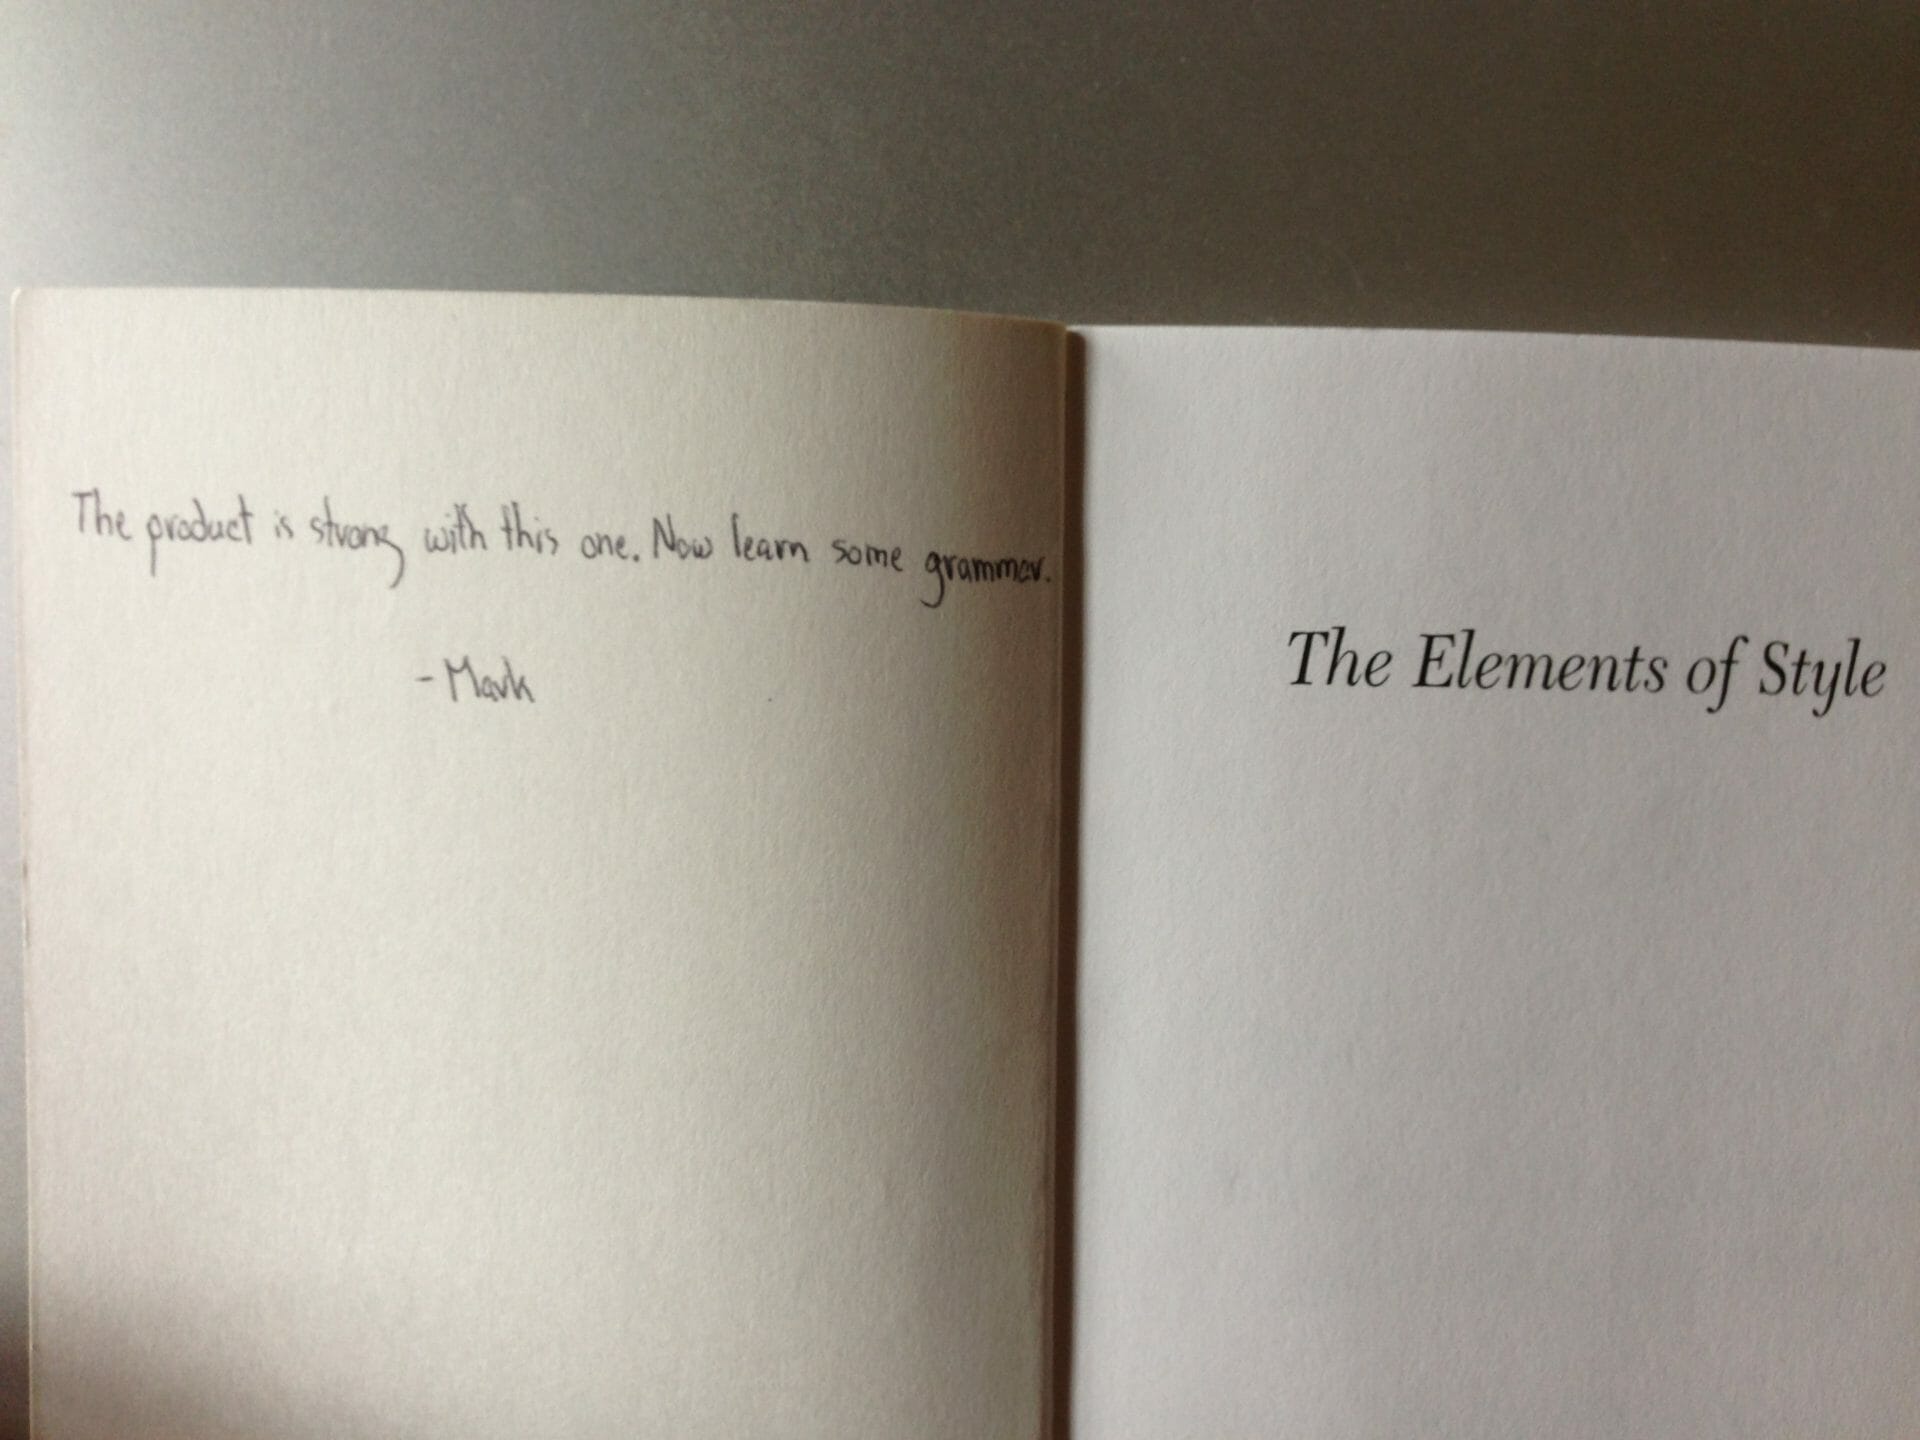 The product is strong with this one. Now learn some grammar.
- Mark
The Elements of Style